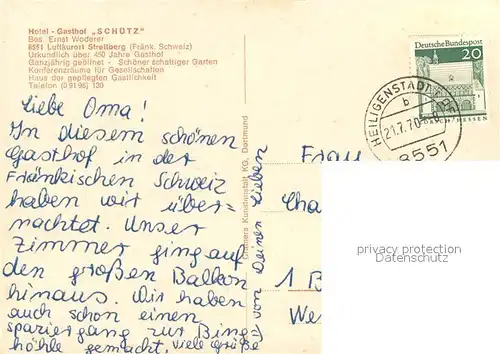 Hotel - Gasthof „SCHÜTZ“
Bes. Ernst Woderer
8551 Luftkurort Streitberg (Fränk. Schweiz)
Urkundlich über 450 Jahre Gasthof
Ganzjährig geöffnet - Schöner schattiger Garten
Konferenzräume für Gesellschaften
Haus der gepflegten Gastlichkeit
Telefon (0 91 96) 130
Liebe Oma!
In diesem schönen
Gasthof in der
Fränkischen Schweiz
haben wir über-
nachtet. Unser
Zimmer ging auf
den großen Balkon
hinaus. Wir haben
auch schon einen
Spaziergang zur Bing
höhle gemacht. Viele Grüße
von Deinen Lieben
Cramers Kunstanstalt KG, Dortmund
Deutsche Bundespost
20
HESSEN
HEILIGENSTADT
b
21.7.70
8551
Frau
Cha
1 B
We
privacy protection
Datenschutz